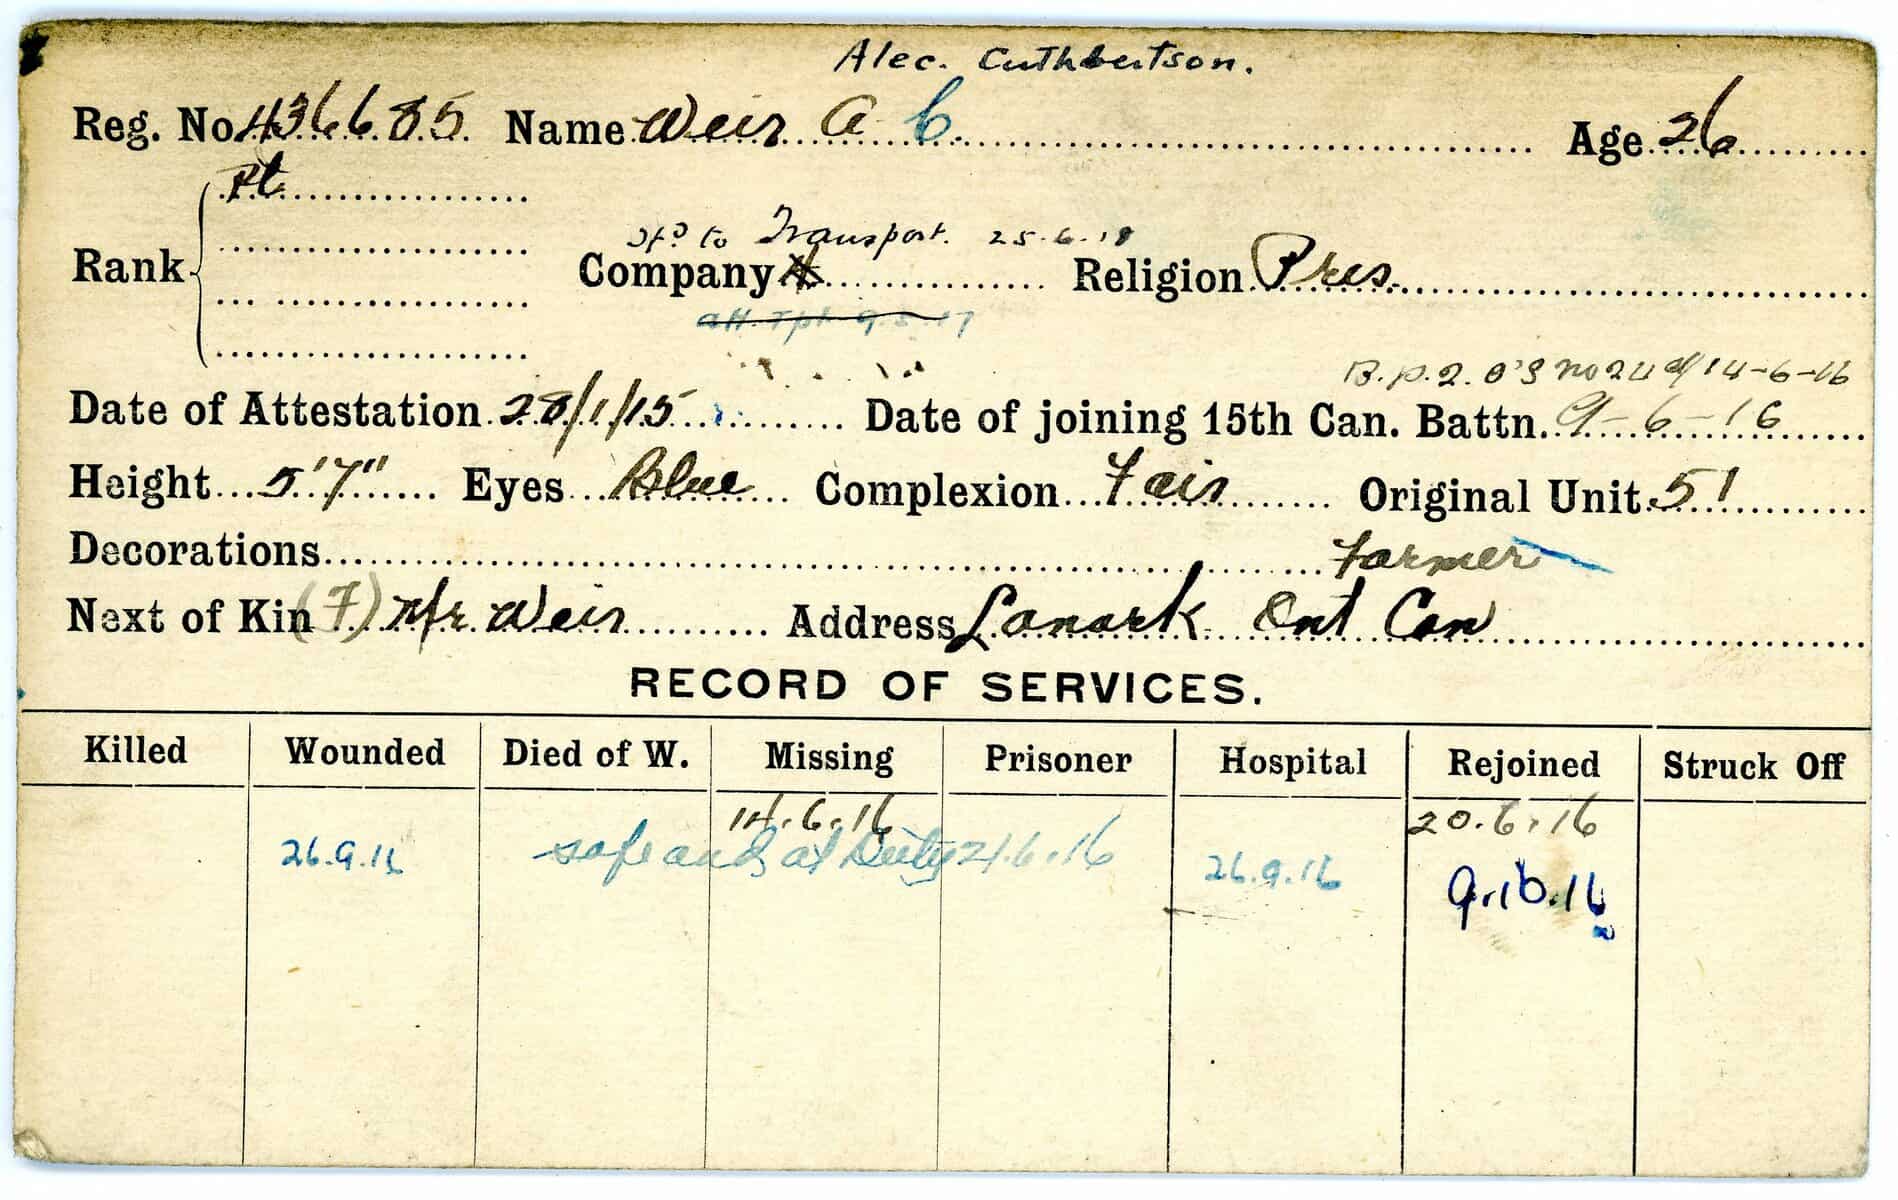 Alec. Cuthbertson.
Reg. No. 436685 Name Weir A C. Age 26
Pt
Tfd to Transport. 25.6.18
Rank Company Religion Pres.
att. Tpt 9.5.17
B.p.2. O's No 24 d/ 14-6-16
Date of Attestation 28/1/15 Date of joining 15th Can. Battn. 9-6-16
Height 5'7" Eyes Blue Complexion Fair Original Unit 51
Decorations Farmer
Next of Kin (F) Mr. Weir Address Lanark Ont Can
RECORD OF SERVICES.
Killed Wounded Died of W. Missing Prisoner Hospital Rejoined Struck Off
14.6.16 20.6.16
26.9.16 safe and at Duty 21.6.16 26.9.16 9.10.16